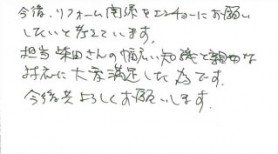 今後、リフォーム関係をエンチョーにお願い
したいと考えています。
担当 柴田さんの幅広い知識と親切な
対応に大変満足した為です。
今後共よろしくお願いします。